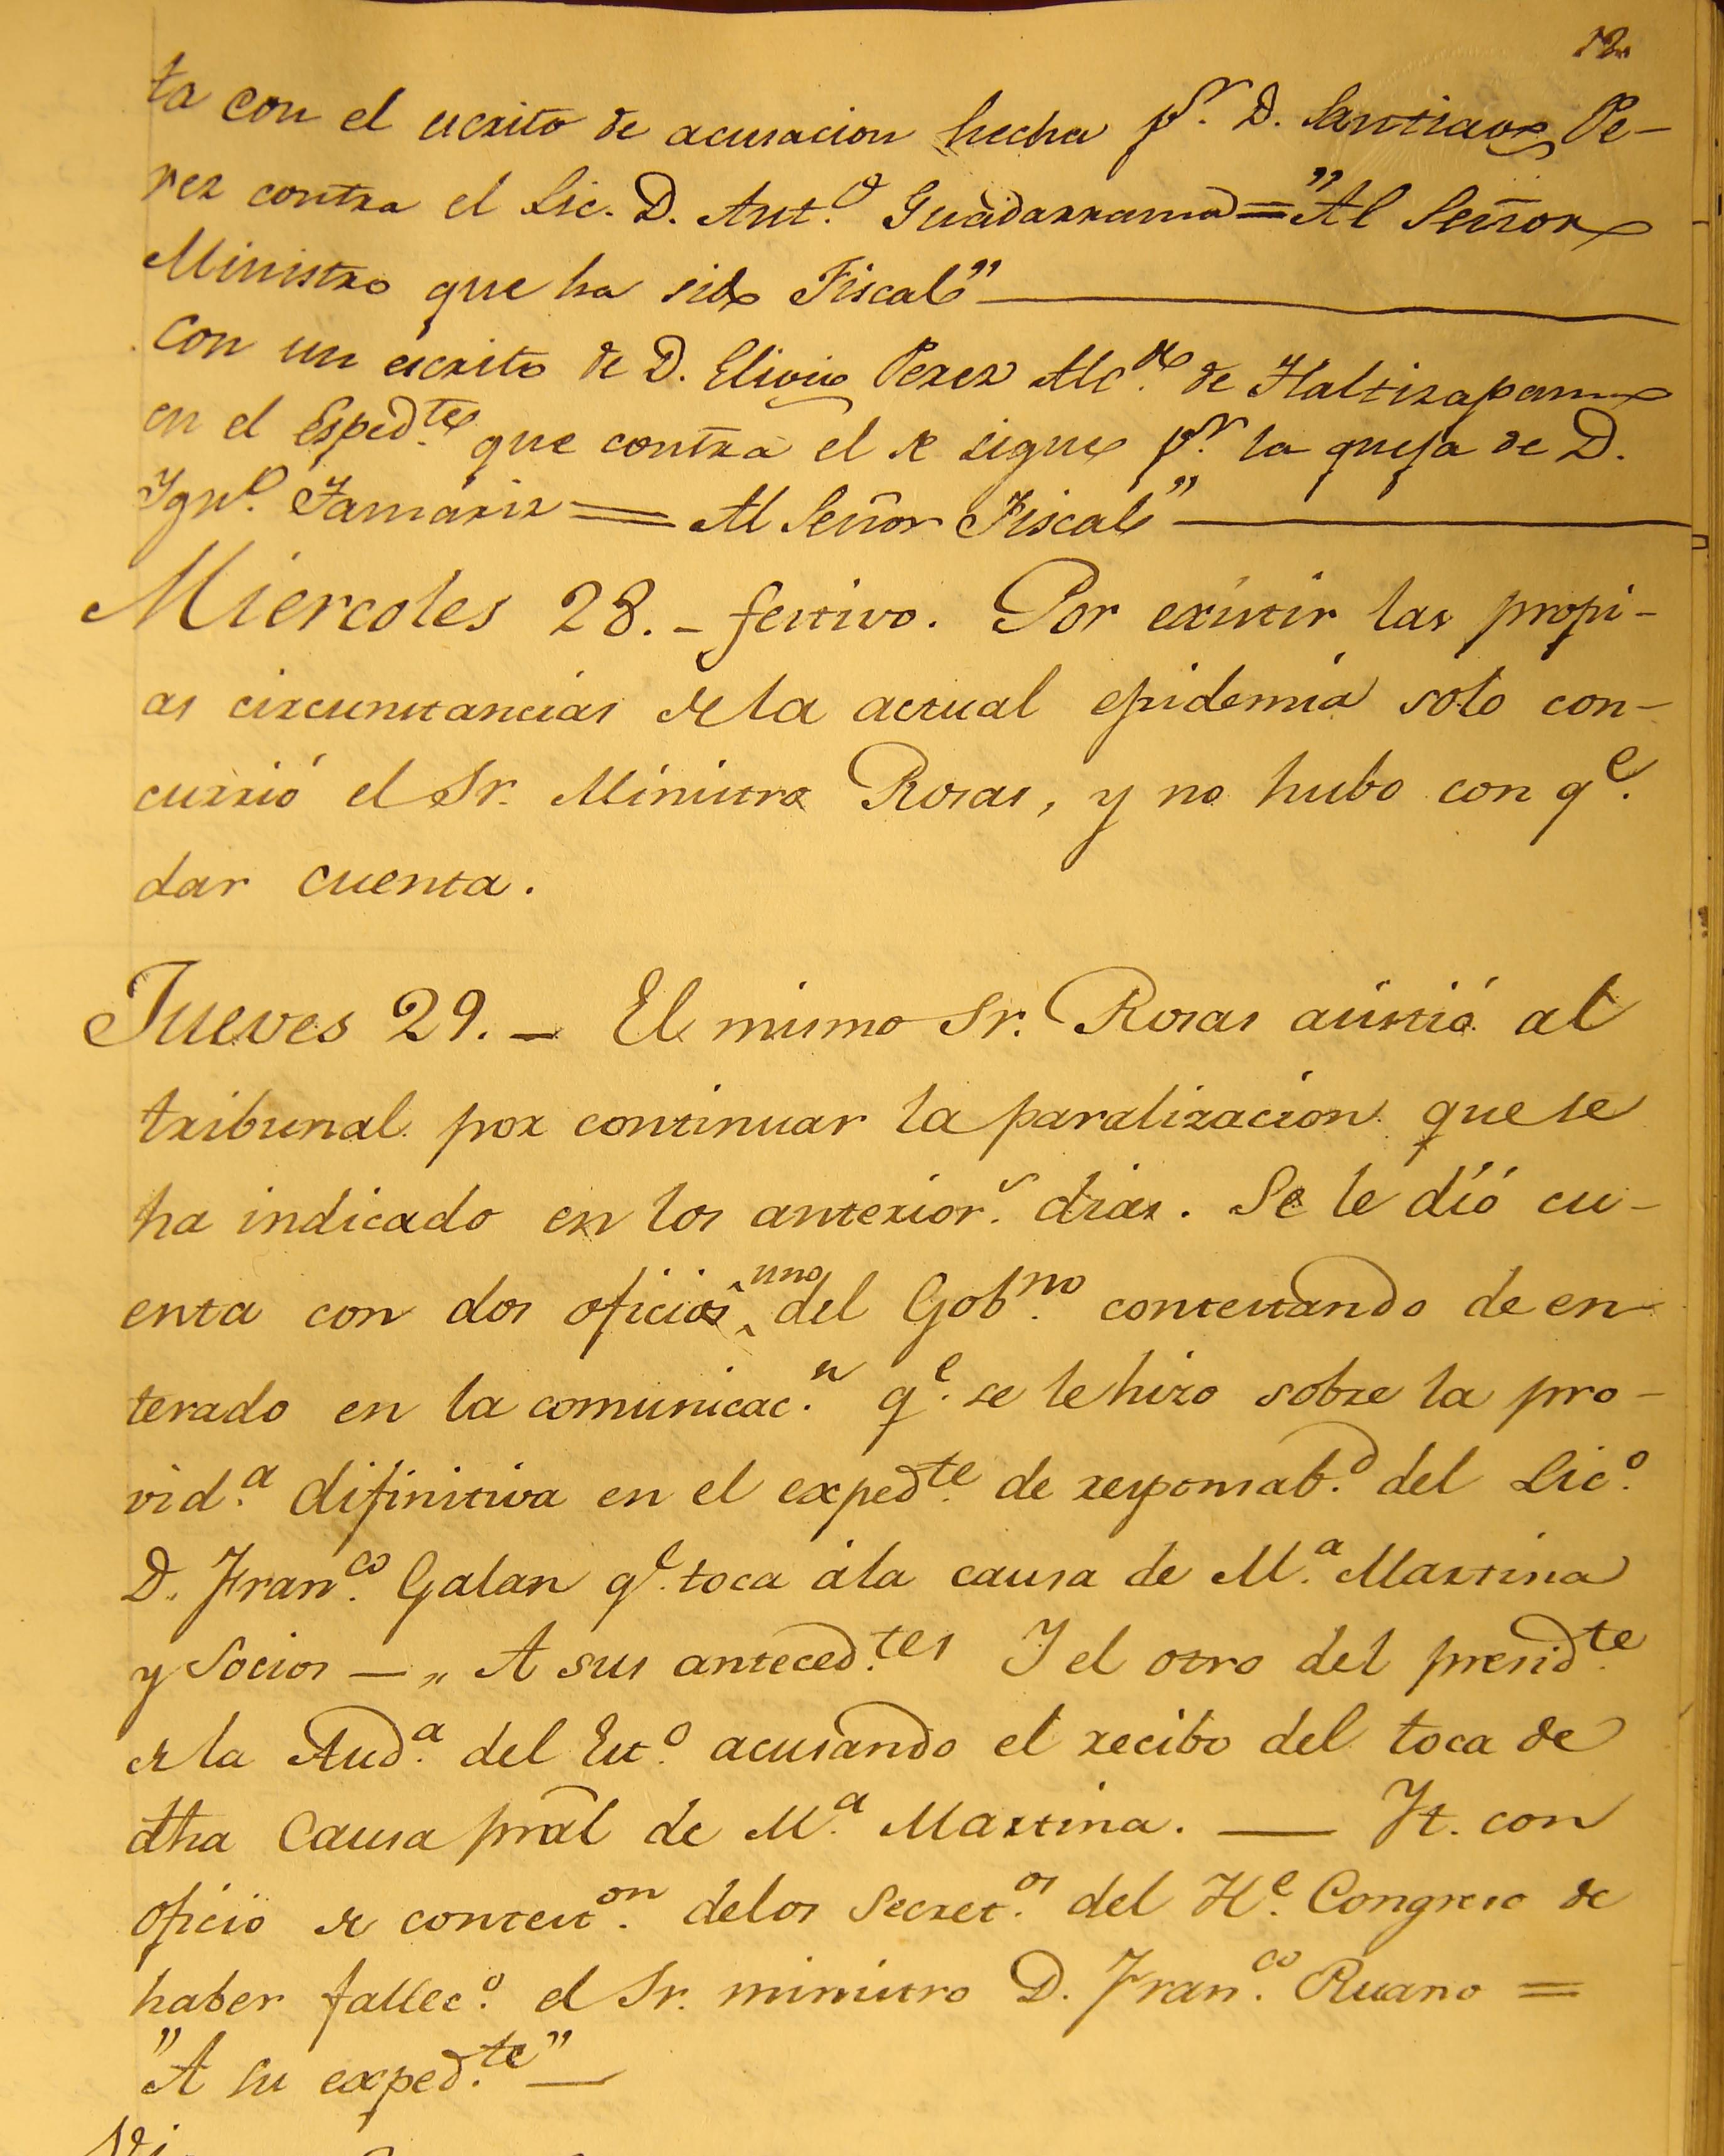 12.
ta con el escrito de acusacion hecha p.r D. Santiago Pe-
rez contra el Lic. D. Ant.o Guadarrama = "Al Señor
Ministro que ha sido Fiscal"
Con un escrito de D. Elivio Perez Alc.de de Tlaltizapam
en el Esped.te que contra el se sigue p.r la queja de D.
Ign.o Tamariz = Al Señor Fiscal"
Miercoles 28. - festivo. Por existir las propi-
as circunstancias de la actual epidemia solo con-
currió el Sr. Ministro Rosas, y no hubo con q.e
dar cuenta.
Jueves 29. - El mismo Sr. Rosas asistió al
tribunal por continuar la paralizacion que se
ha indicado en los anterior.s dias. Se le dió cu-
enta con dos oficios uno del Gob.no contestando de en
terado en la comunicac.n q.e se le hizo sobre la pro-
vid.a difinitiva en el exped.te de responsab.d del Lic.o
D. Fran.co Galan q.e toca á la causa de M.a Martina
y Socios - „ A sus anteced.tes Y el otro del presid.te
de la Aud.a del Est.o acusando el recibo del toca de
dha Causa pral de M.a Martina. — It. con
oficio de contest.on de los Secret.os del H.e Congreso de
haber fallec.o el Sr. ministro D. Fran.co Ruano =
"A su exped.te" —